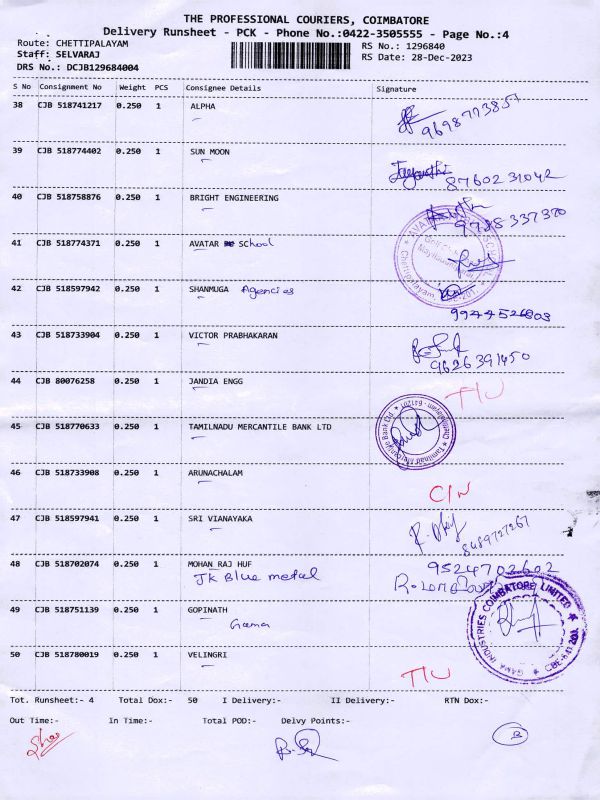 THE PROFESSIONAL COURIERS, COIMBATORE
Delivery Runsheet - PCK - Phone No.:0422-3505555 - Page No.:4
Route: CHETTIPALAYAM RS No.: 1296840
Staff: SELVARAJ RS Date: 28-Dec-2023
DRS No.: DCJB129684004
S No Consignment No Weight PCS Consignee Details Signature
38 CJB 518741217 0.250 1 ALPHA
9698773857
39 CJB 518774402 0.250 1 SUN MOON
8760231042
40 CJB 518758876 0.250 1 BRIGHT ENGINEERING
9788337370
41 CJB 518774371 0.250 1 AVATAR School
42 CJB 518597942 0.250 1 SHANMUGA Agencies
9944526803
43 CJB 518733904 0.250 1 VICTOR PRABHAKARAN
9626391450
44 CJB 80076258 0.250 1 JANDIA ENGG
45 CJB 518770633 0.250 1 TAMILNADU MERCANTILE BANK LTD
46 CJB 518733908 0.250 1 ARUNACHALAM
47 CJB 518597941 0.250 1 SRI VIANAYAKA
8489727267
48 CJB 518702074 0.250 1 MOHAN RAJ HUF 9524702602
JK Blue metal
49 CJB 518751139 0.250 1 GOPINATH
INDUSTRIES COIMBATORE LIMITED
50 CJB 518780019 0.250 1 VELINGRI
Tot. Runsheet:- 4 Total Dox:- 50 I Delivery:- II Delivery:- RTN Dox:-
Out Time:- In Time:- Total POD:- Delvy Points:-
B